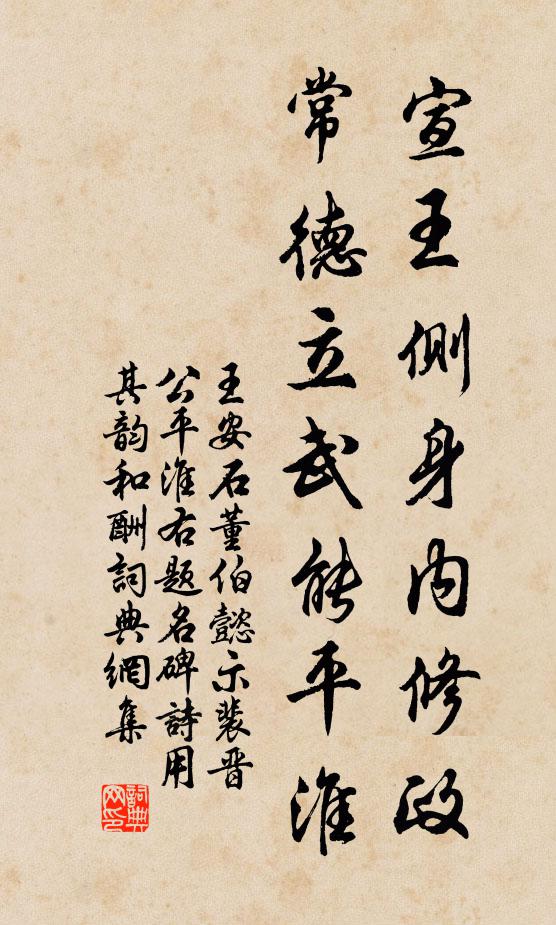 宣王側身內修政
常德立武能平淮
王安石董伯懿示裴晋
公平淮右题名碑詩用
其韵和酬詞典網集
詞典網印